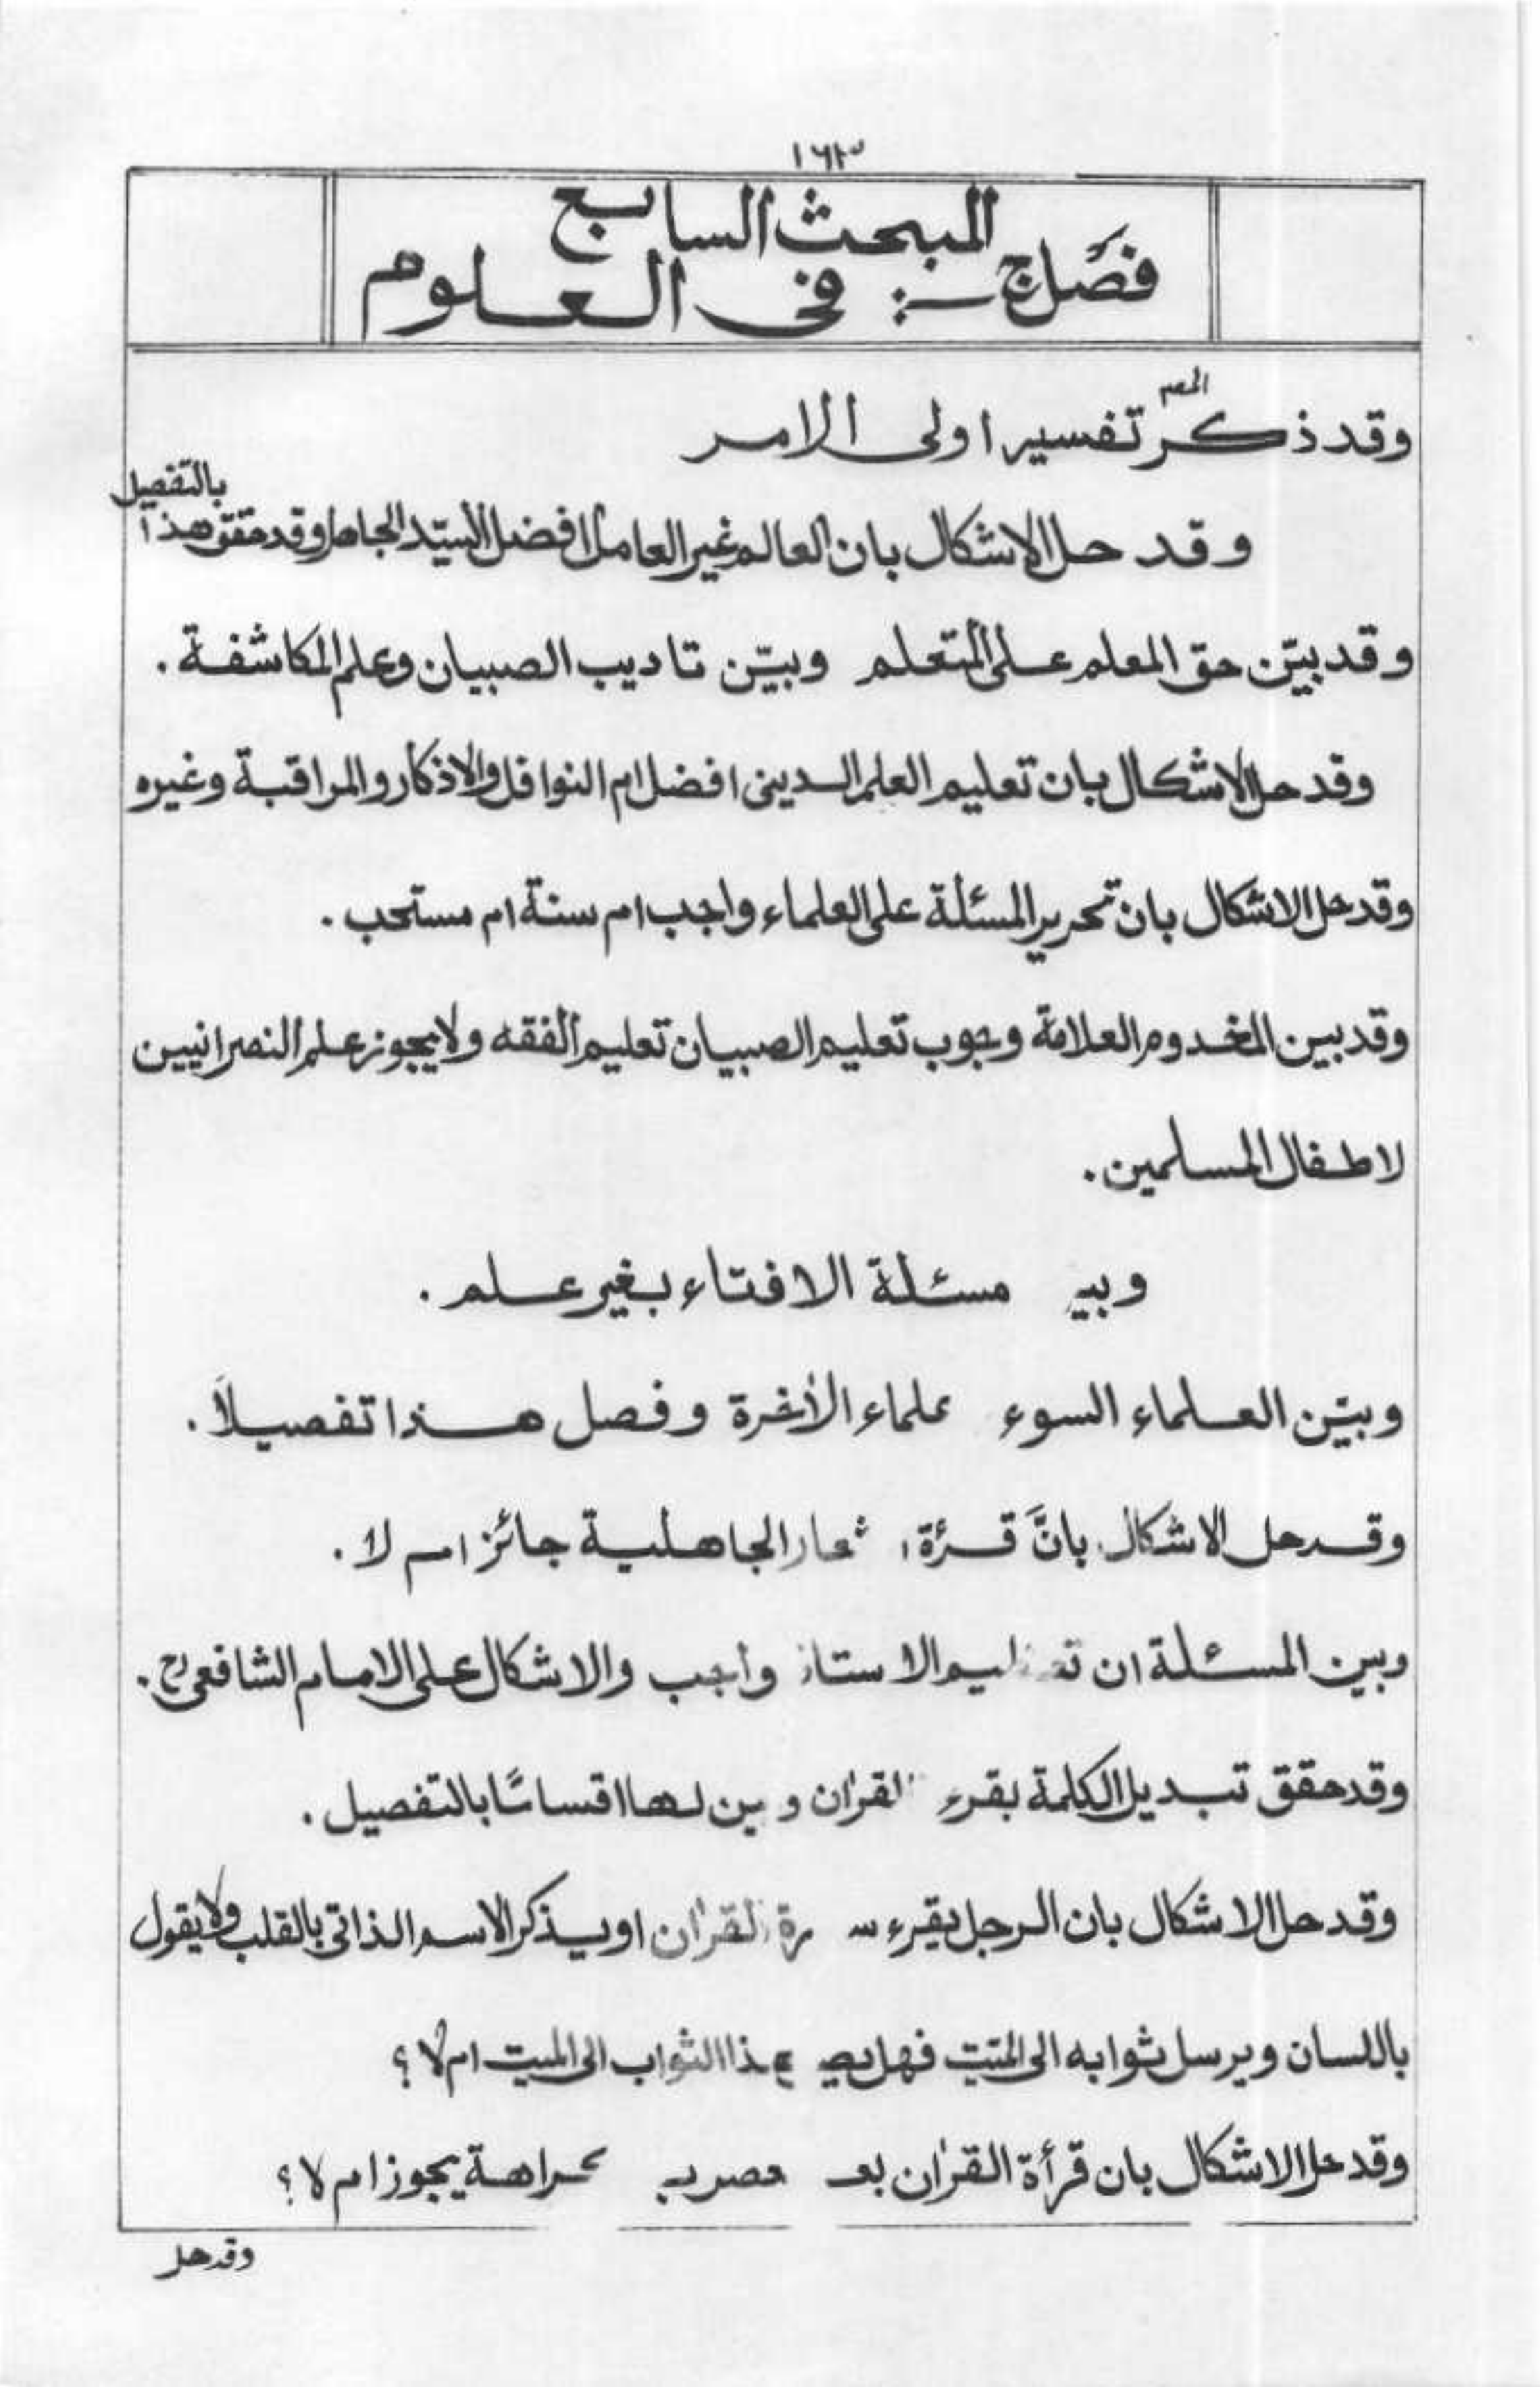 ١٦٣
المبحث السابع
فصل ج : في العلوم
المصـ
وقد ذكر تفسير اولى الامر
بالتفصيل
وقد حل الاشكال بان العالم غير العامل افضل ام السيّد الجاهل وقد حقق هذا
وقد بيّن حق المعلم على المتعلم وبيّن تاديب الصبيان وعلم المكاشفة .
وقد حل الاشكال بان تعليم العلم الدينى افضل ام النوافل والاذكار والمراقبة وغيره
وقد حل الاشكال بان تحرير المسئلة على العلماء واجب ام سنة ام مستحب .
وقد بين المخدوم العلامة وجوب تعليم الصبيان تعليم الفقه ولا يجوز علم النصرانيين
لاطفال المسلمين .
مسئلة الافتاء بغير علم .
وبيّن العلماء السوء علماء الأخرة وفصل هذا تفصيلاً .
وقد حل الاشكال بانَّ قرؤة الجاهلية جائز ام لا .
وبين المسئلة ان واجب والاشكال على الامام الشافعي رح .
وقد حقق تبديل الكلمة القرأن لها اقساسًا بالتفصيل .
وقد حل الاشكال بان الرجل يقرء القرأن او يذكر الاسم الذاتى بالقلب ولا يقول
باللسان ويرسل ثوابه الى الميّت فهل الثواب الى الميت ام لا ؟
وقد حل الاشكال بان قرأة القرأن يجوز ام لا ؟
وقد حل